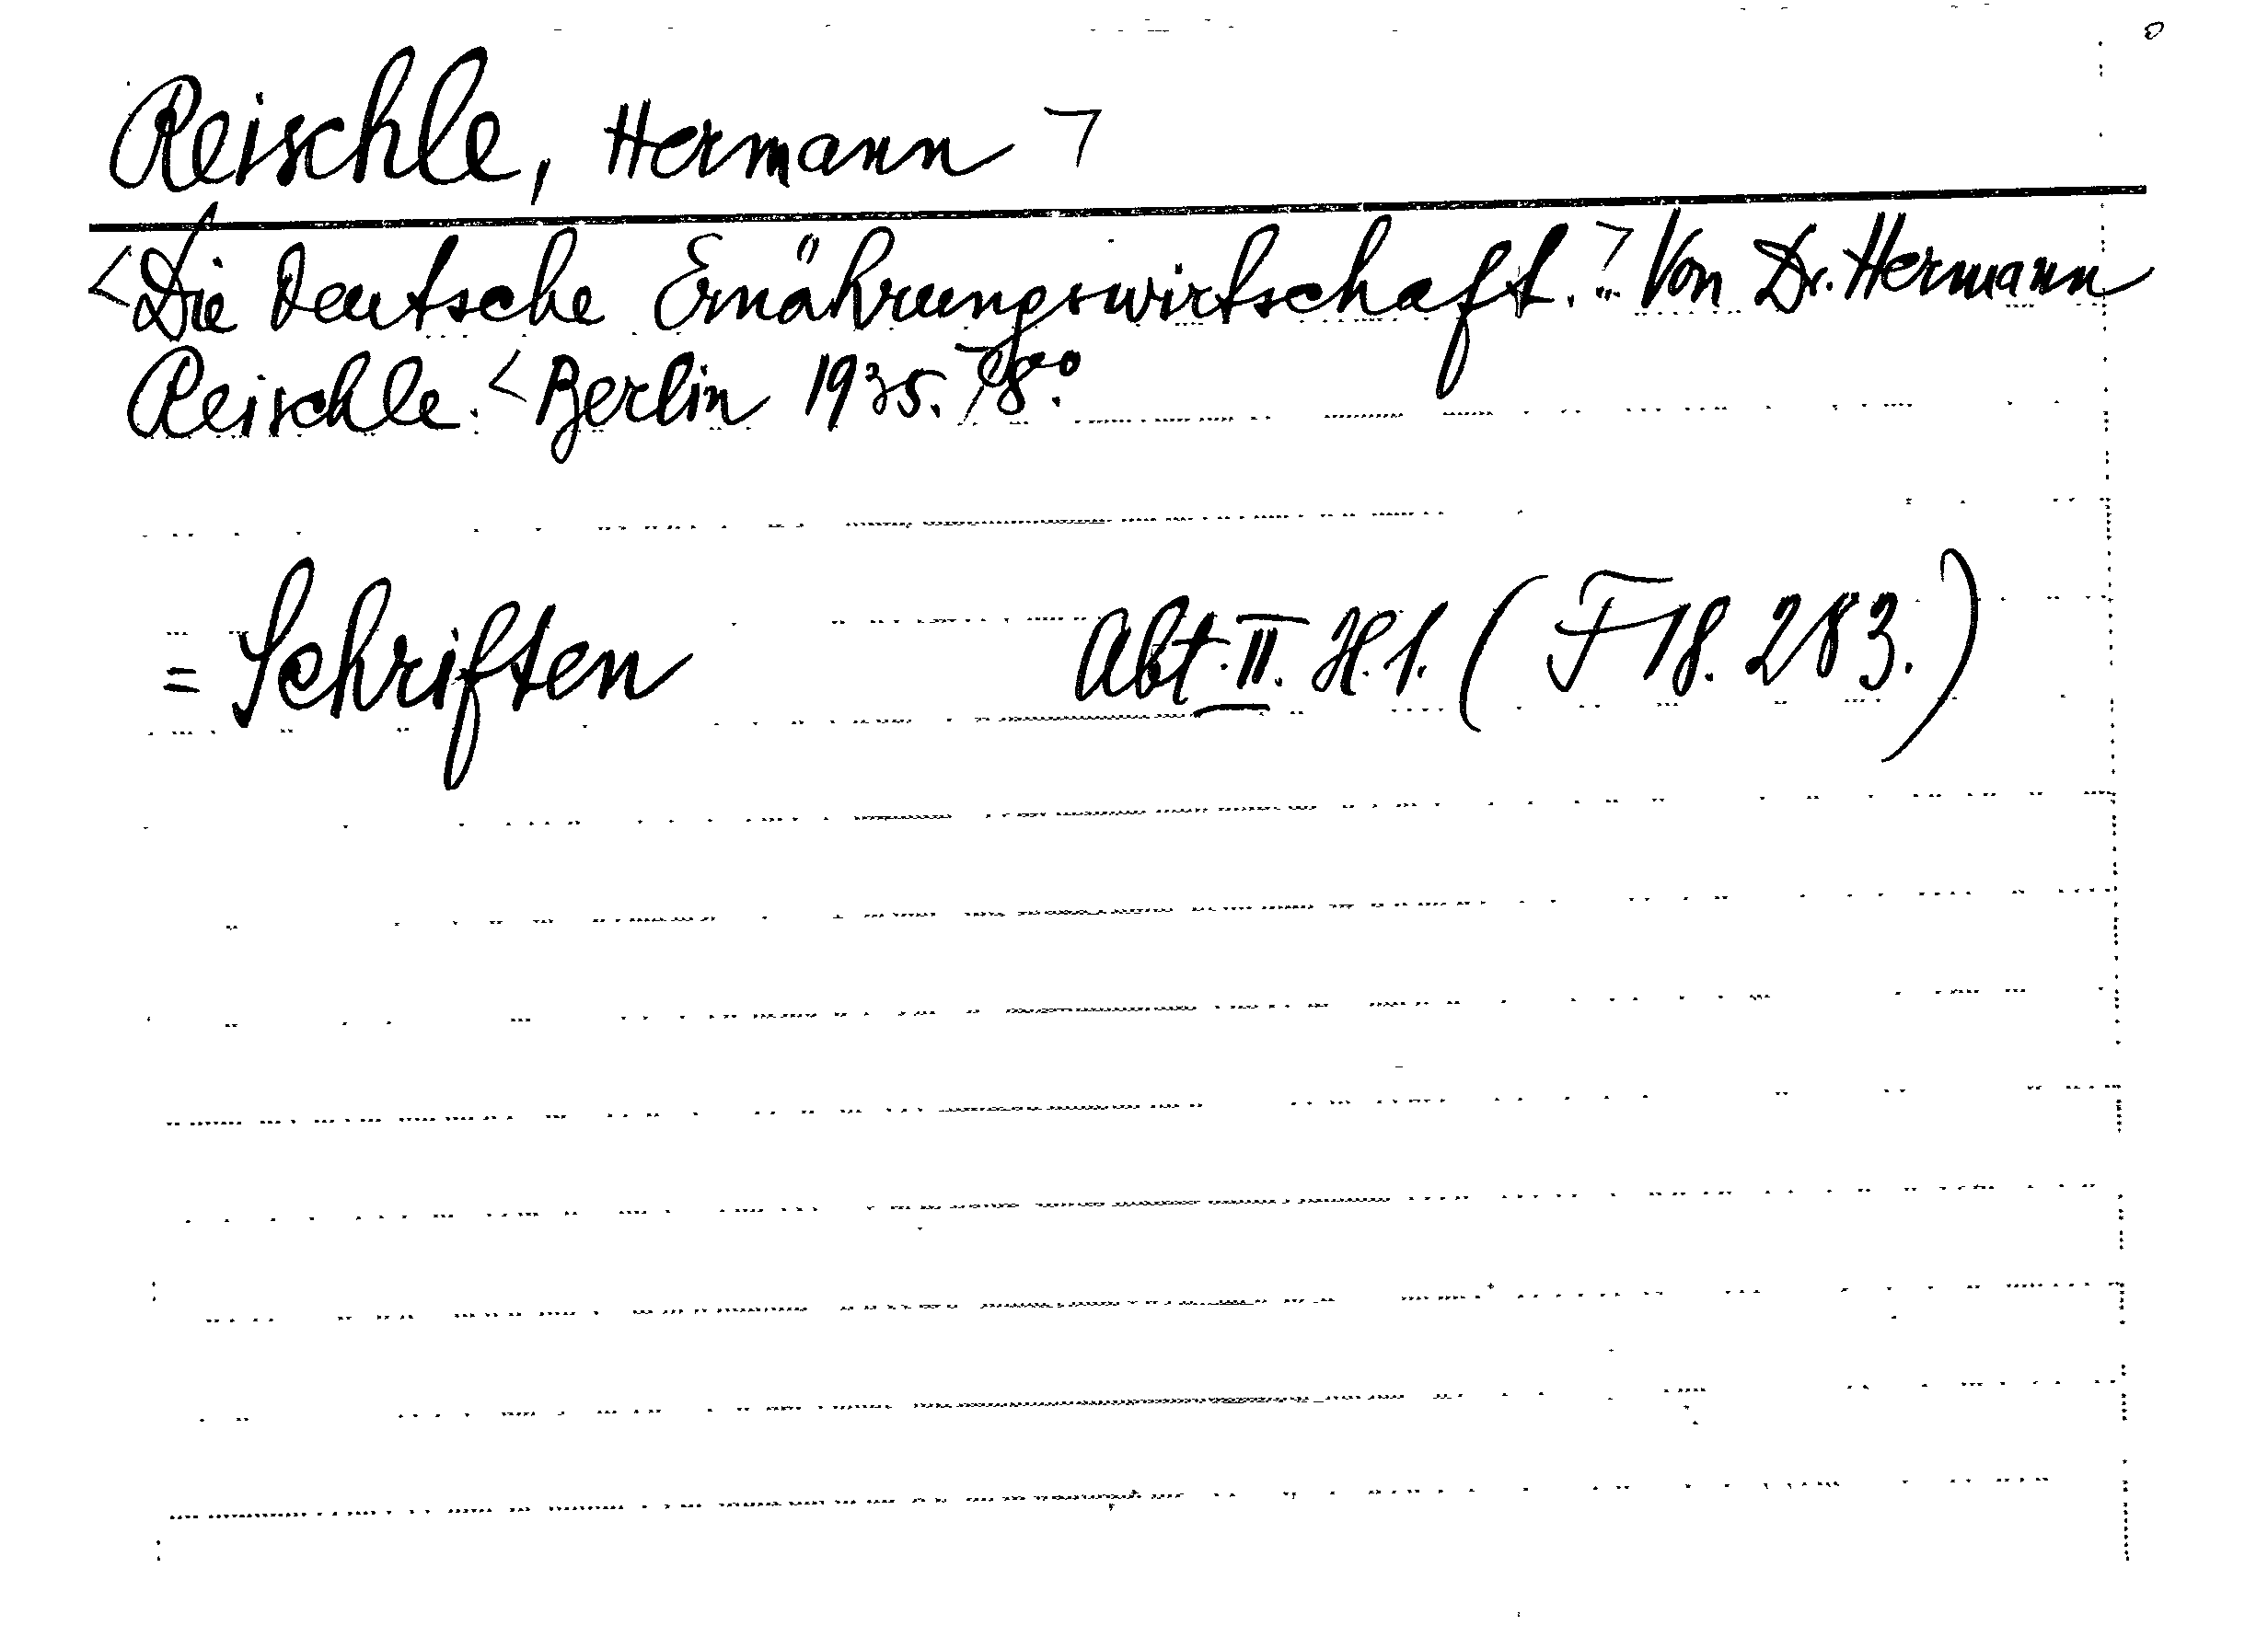 Reischle, Hermann ¬
<Die Deutsche Ernährungswirtschaft.> .. Von Dr. Hermann
Reischle. <Berlin 1935.> 8°.
= Schriften Abt. II. H. 1. (F 18. 283.)